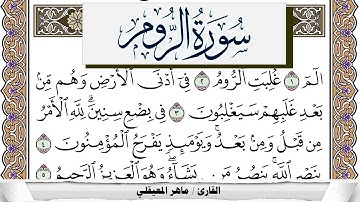 سُورَةُ الرُّومِ
الٓمٓ ١ غُلِبَتِ ٱلرُّومُ ٢ فِىٓ أَدْنَى ٱلْأَرْضِ وَهُم مِّنۢ
بَعْدِ غَلَبِهِمْ سَيَغْلِبُونَ ٣ فِى بِضْعِ سِنِينَ ۗ لِلَّهِ ٱلْأَمْرُ
مِن قَبْلُ وَمِنۢ بَعْدُ ۚ وَيَوْمَئِذٍ يَفْرَحُ ٱلْمُؤْمِنُونَ ٤
بِنَصْرِ ٱللَّهِ ۚ يَنصُرُ مَن يَشَآءُ ۖ وَهُوَ ٱلْعَزِيزُ ٱلرَّحِيمُ ٥
القارئ / ماهر المعيقلي